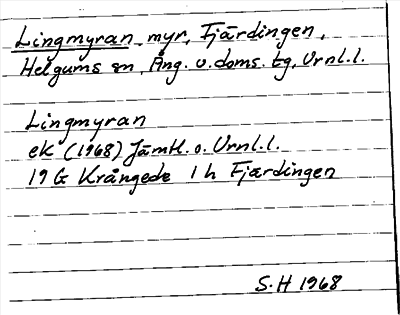 Lingmyran, myr, Fjärdingen,
Helgums sn, Ång. v. doms. tg, Vrnl.l.
Lingmyran
ek (1968) Jämtl. o. Vrnl.l.
19 G Krångede 1 h Fjärdingen
S.H 1968